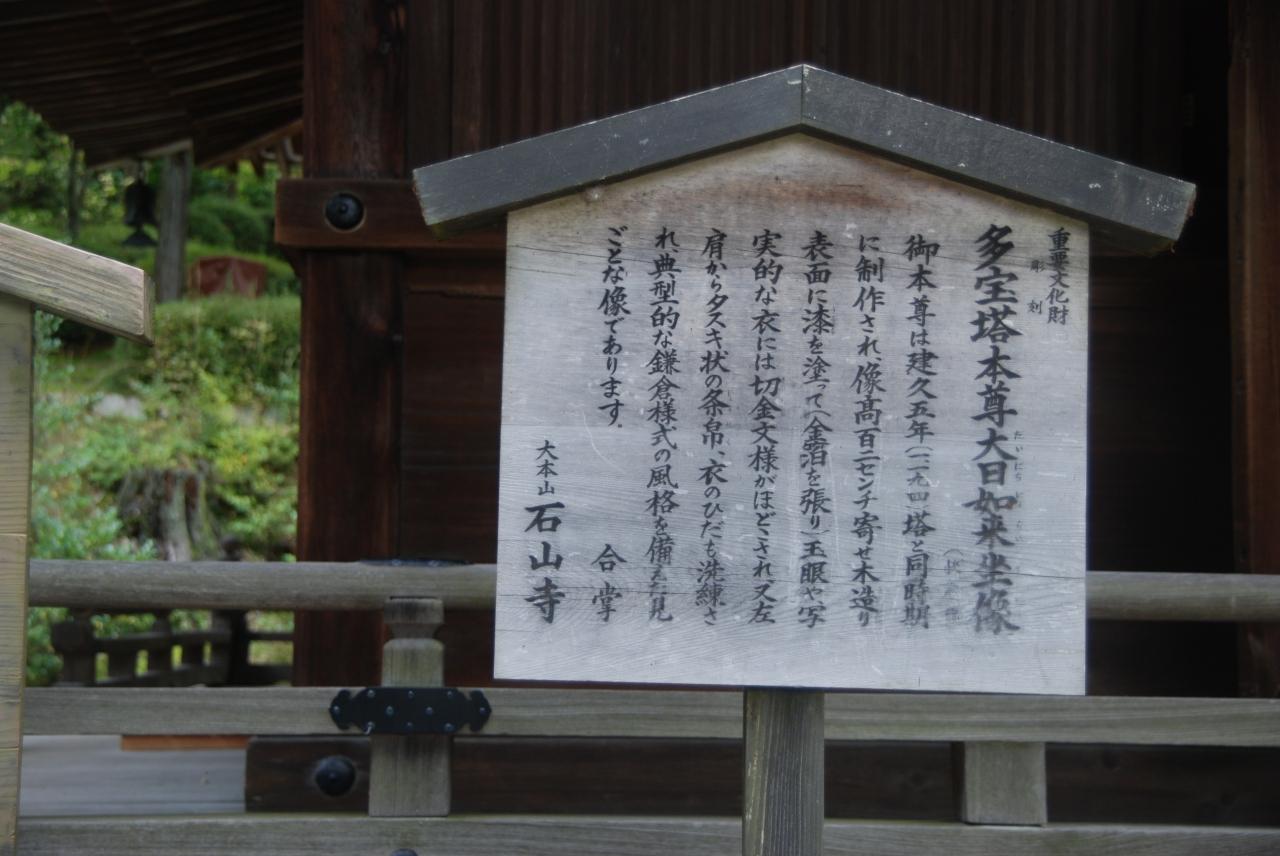 重要文化財
彫刻
多宝塔本尊大日如来坐像
たいにちにょらい
御本尊は建久五年(一一九四)塔と同時期
に制作され、像高百二センチ寄せ木造り
表面に漆を塗って(金箔を張り)玉眼や写
実的な衣には切金文様がほどこされ、又左
肩からタスキ状の条帛、衣のひだも洗練さ
れ、典型的な鎌倉様式の風格を備えた見
ごとな像であります。
合掌
大本山 石山寺